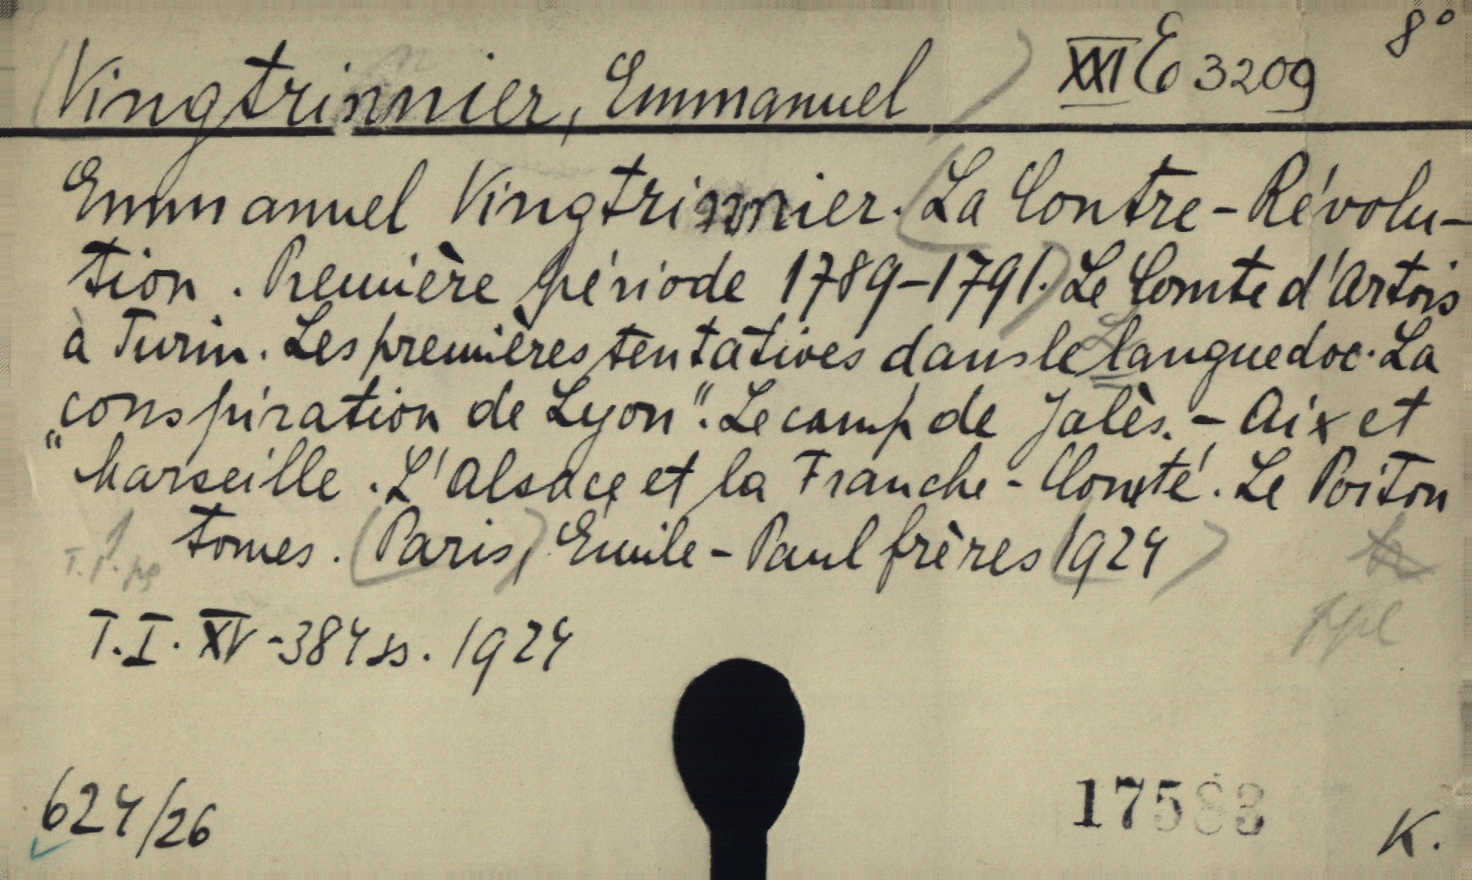 Vingtrinnier, Emmanuel XXI E 3209 8°
Emmanuel Vingtrinnier. La Contre-Révolu-
tion. Première période 1789-1791. Le Comte d'Artois
à Turin. Les premières tentatives dans le Languedoc. La
"conspiration de Lyon". Le camp de Jalès. - Aix et
Marseille. L'Alsace et la Franche-Comté. Le Poitou
tomes. (Paris) Emile-Paul frères 1924
T.I. XV-384 ss. 1924
624/26
17583
K.